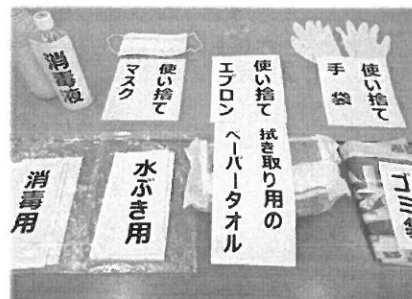 消毒液
使い捨て
マスク
使い捨て
エプロン
使い捨て
手袋
消毒用
水ぶき用
拭き取り用の
ペーパータオル
ゴミ袋